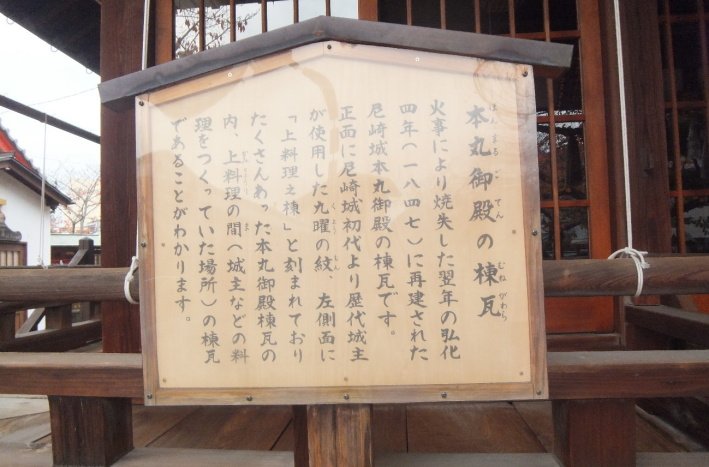 本丸御殿の棟瓦
火事により焼失した翌年の弘化
四年（一八四七）に再建された
尼崎城本丸御殿の棟瓦です。
正面に尼崎城初代より歴代城主
が使用した九曜の紋、左側面に
「上料理之棟」と刻まれており
たくさんあった本丸御殿棟瓦の
内、上料理の間（城主などの料
理をつくっていた場所）の棟瓦
であることがわかります。